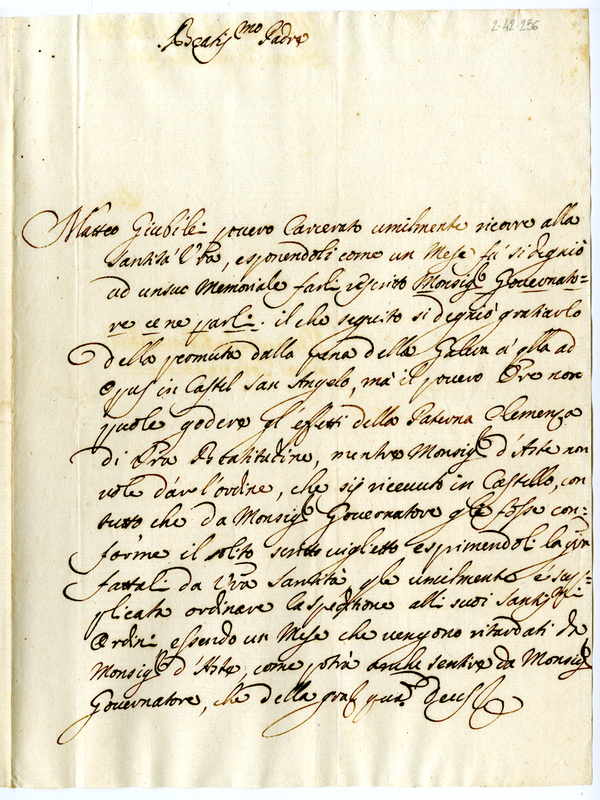 2-42-256
Beatis.mo Padre
Matteo Giubilei povero Carcerato umilmente ricorre alla
Santità V'ra, esponendoli come un Mese fà si degnò
ad un suo Memoriale farli rescritto Monsig.r Governato=
re ce ne parli. il che seguito si degnò gratiarlo
della permuta dalla pena della Galera à q'lla ad
Opus in Castel San Angelo, mà il povero Ore non
puole godere gl'effetti della Paterna Clemenza
di V'ra Beatitudine, mentre Monsig.r d'Aste non
vole dare l'ordine, che sij ricevuto in Castello, con
tutto che da Monsig.r Governatore gle fosse con=
forme il solito scritto viglietto esprimendoli la gra
fattali da V'ra Santità q'le umilmente è sup=
plicata ordinare la speditione alli suoi Santiss.mi
Ordini essendo un Mese che vengono ritardati da
Monsig.r d'Aste, come potrà anche sentire da Monsig.r
Governatore, che della gra q'uam Deus